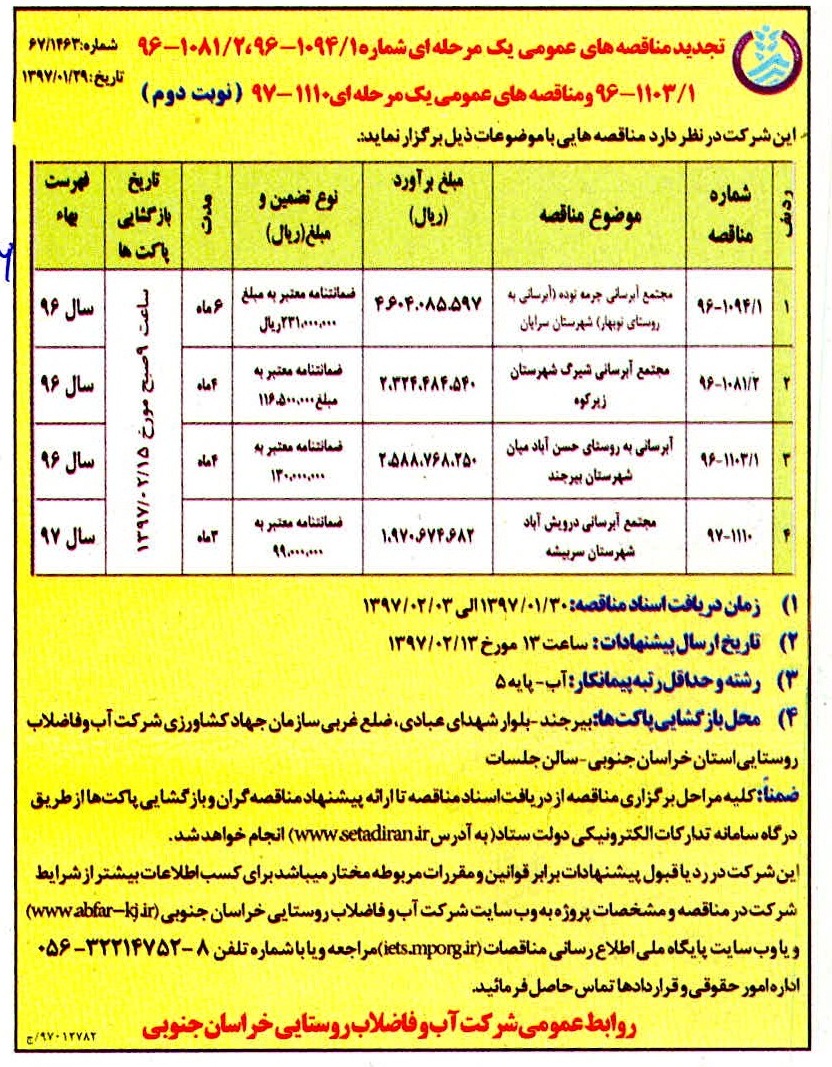 شماره:۶۷/۱۴۶۳
تاریخ:۱۳۹۷/۰۱/۲۹
تجدید مناقصه های عمومی یک مرحله ای شماره ۹۶-۱۰۹۴/۱،۹۶-۱۰۸۱/۲
۹۶-۱۱۰۳/۱ و مناقصه های عمومی یک مرحله ای ۹۷-۱۱۱۰ (نوبت دوم)
این شرکت در نظر دارد مناقصه هایی با موضوعات ذیل برگزار نماید:
ردیف | شماره مناقصه | موضوع مناقصه | مبلغ برآورد (ریال) | نوع تضمین و مبلغ(ریال) | مدت | تاریخ بازگشایی پاکت ها | فهرست بهاء
۱ | ۹۶-۱۰۹۴/۱ | مجتمع آبرسانی چرمه نوده (آبرسانی به روستای نوبهار) شهرستان سرایان | ۴.۶۰۴.۰۸۵.۵۹۷ | ضمانتنامه معتبر به مبلغ ۲۳۱.۰۰۰.۰۰۰ریال | ۶ماه | ساعت ۹صبح مورخ ۱۳۹۷/۰۲/۱۵ | سال ۹۶
۲ | ۹۶-۱۰۸۱/۲ | مجتمع آبرسانی شیرگ شهرستان زیرکوه | ۲.۳۲۴.۴۸۴.۵۴۰ | ضمانتنامه معتبر به مبلغ۱۱۶.۵۰۰.۰۰۰ | ۴ماه | سال ۹۶
۳ | ۹۶-۱۱۰۳/۱ | آبرسانی به روستای حسن آباد میان شهرستان بیرجند | ۲.۵۸۸.۷۶۸.۲۵۰ | ضمانتنامه معتبر به ۱۳۰.۰۰۰.۰۰۰ | ۴ماه | سال ۹۶
۴ | ۹۷-۱۱۱۰ | مجتمع آبرسانی درویش آباد شهرستان سربیشه | ۱.۹۷۰.۶۷۴.۶۸۲ | ضمانتنامه معتبر به ۹۹.۰۰۰.۰۰۰ | ۳ماه | سال ۹۷
۱) زمان دریافت اسناد مناقصه: ۱۳۹۷/۰۱/۳۰ الی ۱۳۹۷/۰۲/۰۳
۲) تاریخ ارسال پیشنهادات: ساعت ۱۳ مورخ ۱۳۹۷/۰۲/۱۳
۳) رشته و حداقل رتبه پیمانکار: آب- پایه ۵
۴) محل بازگشایی پاکت‌ها: بیرجند-بلوار شهدای عبادی، ضلع غربی سازمان جهاد کشاورزی شرکت آب و فاضلاب
روستایی استان خراسان جنوبی-سالن جلسات
ضمناً: کلیه مراحل برگزاری مناقصه از دریافت اسناد مناقصه تا ارائه پیشنهاد مناقصه گران و بازگشایی پاکت‌ها از طریق
درگاه سامانه تدارکات الکترونیکی دولت ستاد( به آدرس www.setadiran.ir) انجام خواهد شد.
این شرکت در رد یا قبول پیشنهادات برابر قوانین و مقررات مربوطه مختار میباشد برای کسب اطلاعات بیشتر از شرایط
شرکت در مناقصه و مشخصات پروژه به وب سایت شرکت آب و فاضلاب روستایی خراسان جنوبی (www.abfar-kj.ir)
و یا وب سایت پایگاه ملی اطلاع رسانی مناقصات (iets.mporg.ir)مراجعه و یا با شماره تلفن ۸-۳۲۲۱۴۷۵۲-۰۵۶
اداره امور حقوقی و قراردادها تماس حاصل فرمائید.
روابط عمومی شرکت آب و فاضلاب روستایی خراسان جنوبی
۹۷۰۱۲۷۸۲/ج